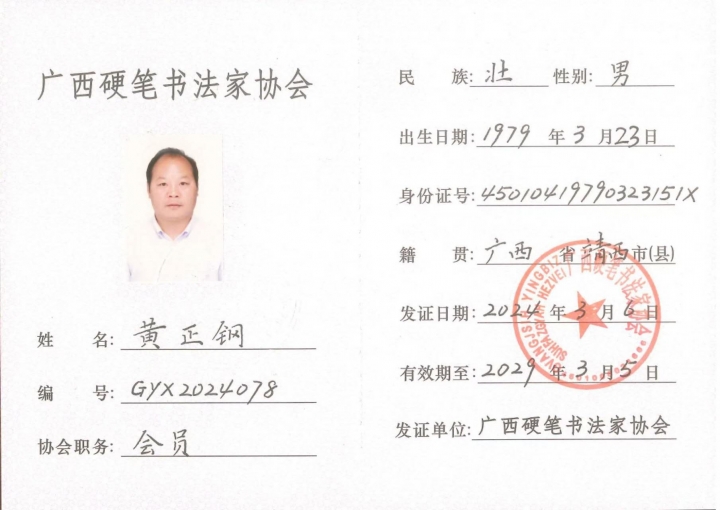 广西硬笔书法家协会
姓 名: 黄正钢
编 号: GYX2024078
协会职务: 会员
民 族: 壮 性别: 男
出生日期: 1979 年 3 月 23 日
身份证号: 45010419790323151X
籍 贯: 广西 省 靖西 市(县)
发证日期: 2024 年 3 月 6 日
有效期至: 2029 年 3 月 5 日
发证单位: 广西硬笔书法家协会
广西硬笔书法家协会